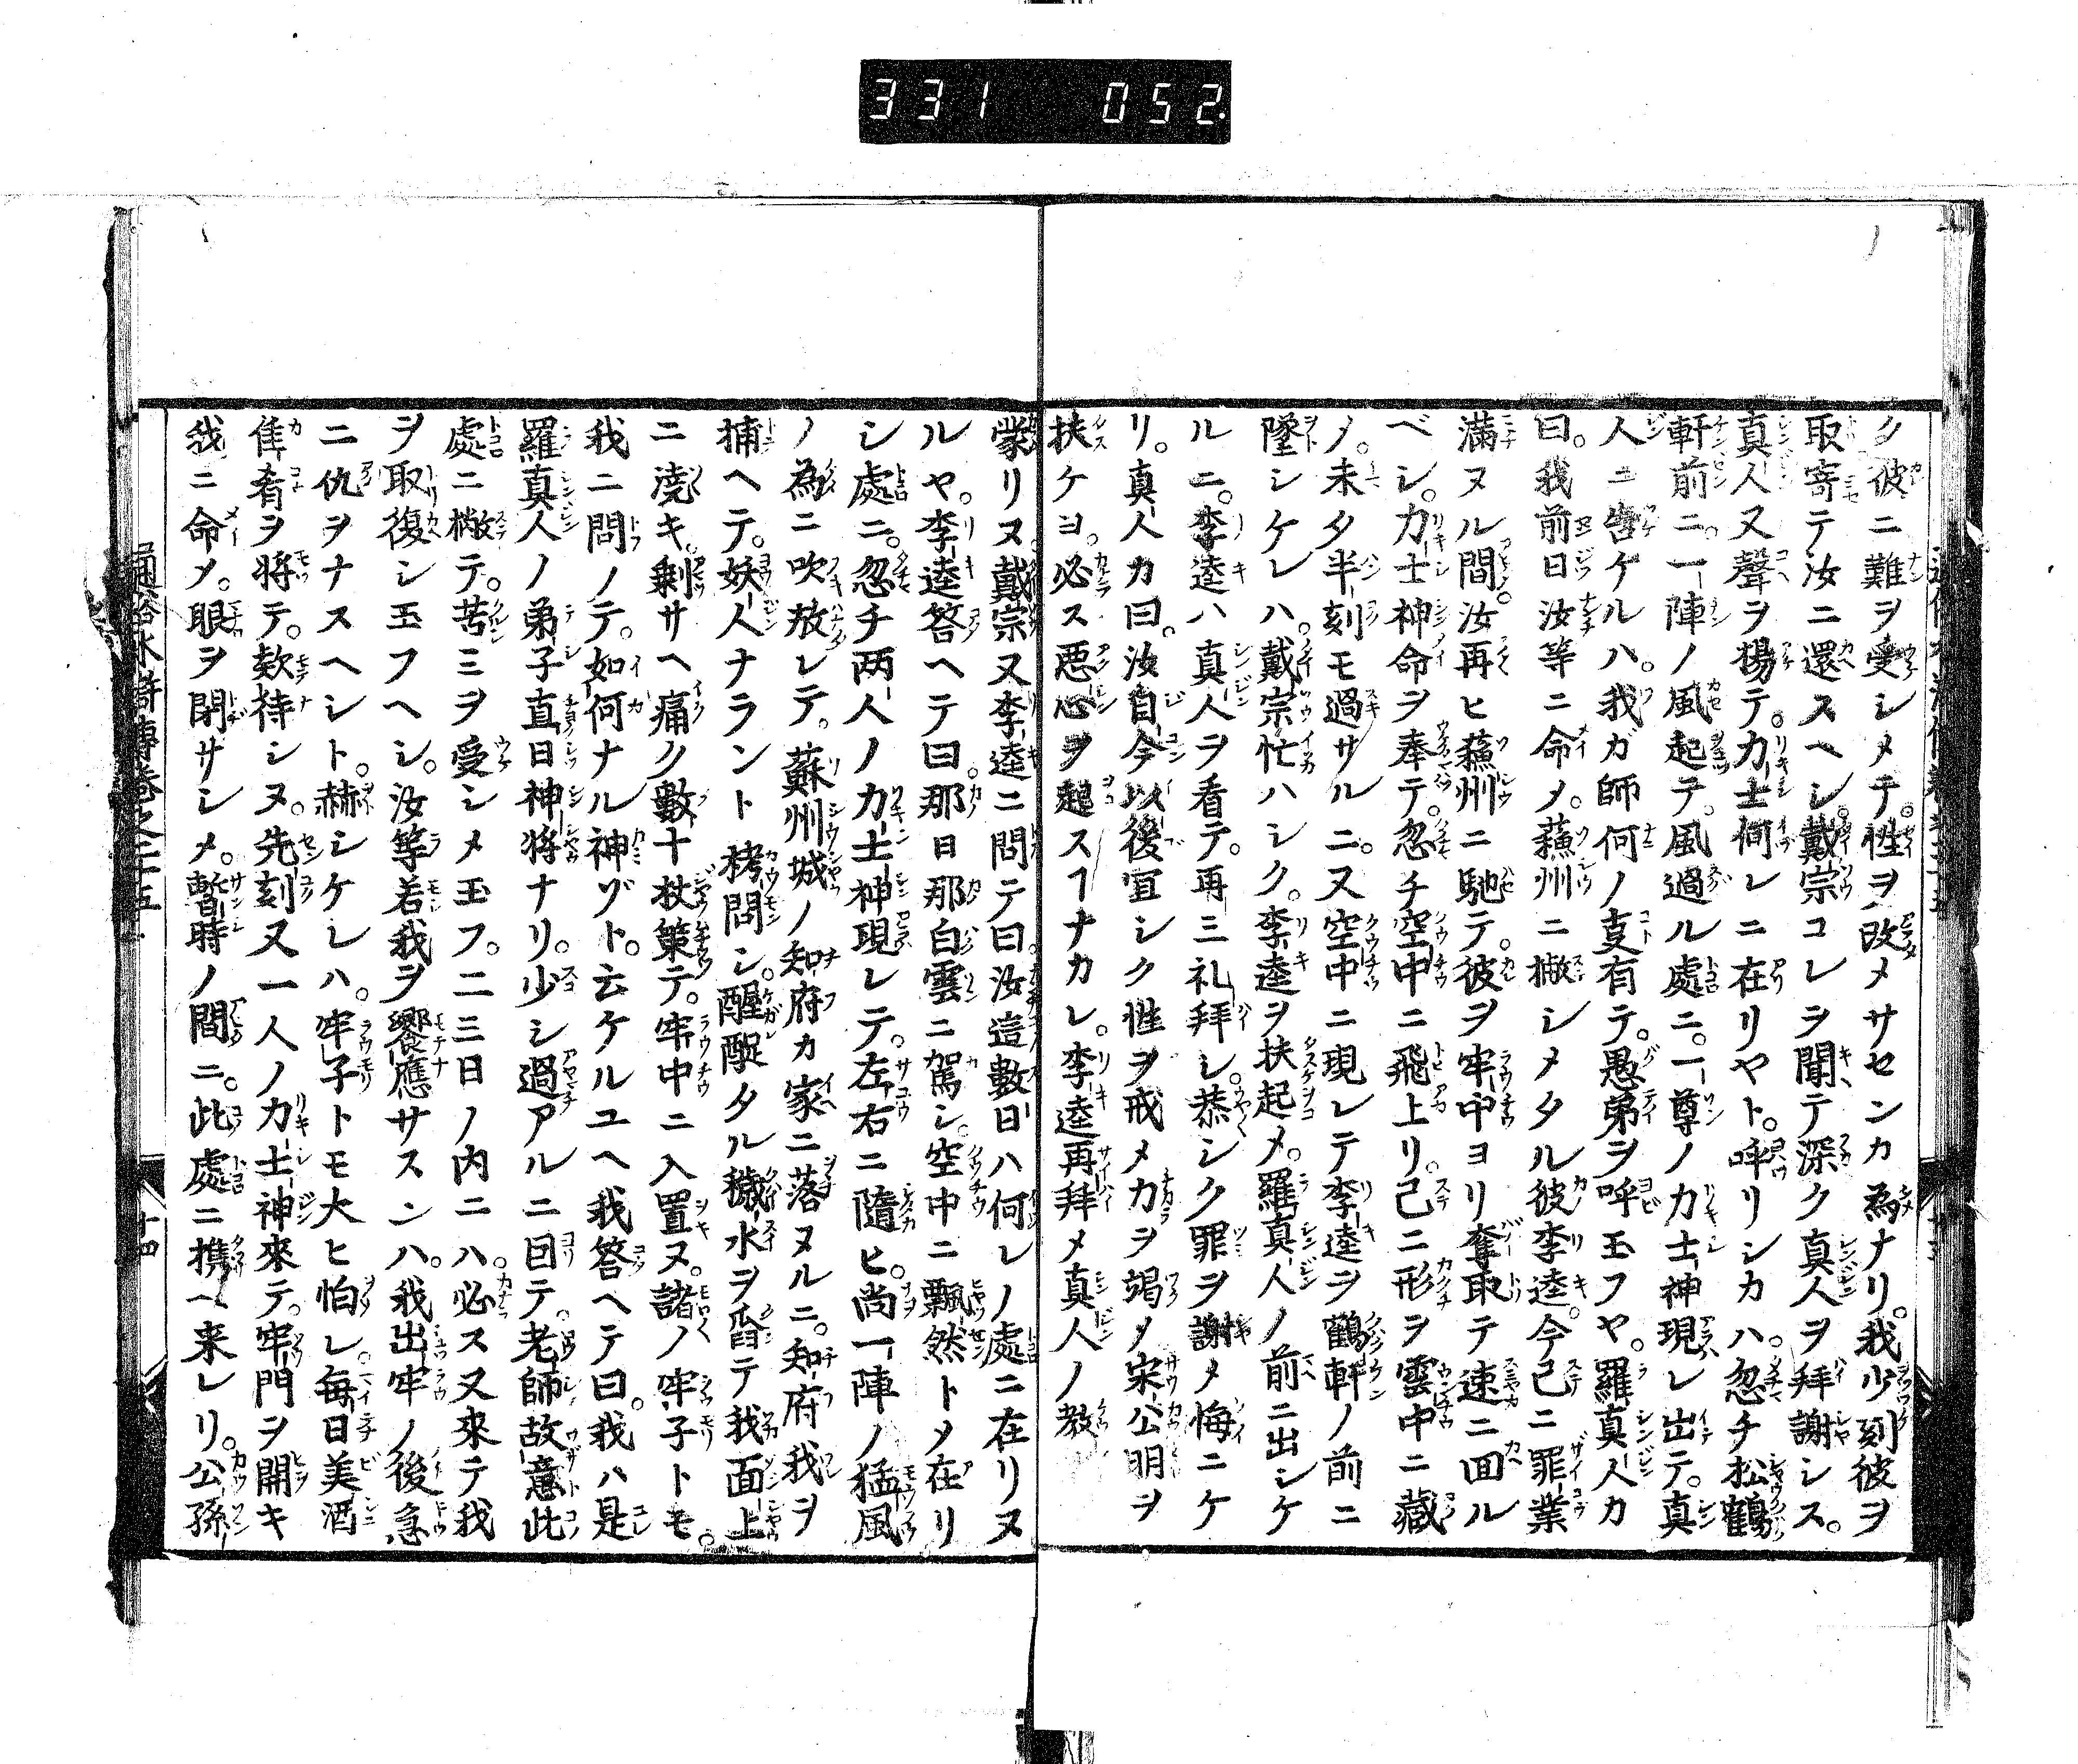 331 052.
ク彼ニ難ヲ受シメテ。性ヲ改メサセンカ為ナリ。我少刻彼ヲ
取寄テ汝ニ還スヘシ。戴宗コレヲ聞テ深ク真人ヲ拜謝シス。
真人又聲ヲ揚テ。力士何レニ在リヤト。呼リシカハ。忽チ松鶴
軒前ニ。一陣ノ風起テ。風過ル處ニ。一尊ノ力士神現レ出テ。真
人ニ告ケルハ。我ガ師何ノ㕝有テ。愚弟ヲ呼玉フヤ。羅真人カ
曰。我前日汝等ニ命メ。蘓州ニ撇シメタル彼李逵。今已ニ罪業
滿ヌル間。汝再ヒ蘓州ニ馳テ。彼ヲ牢中ヨリ奪取テ速ニ回ル
ベシ。力士神命ヲ奉テ。忽チ空中ニ飛上リ。已ニ形ヲ雲中ニ藏
ノ。未タ半刻モ過サルニ。又空中ニ現レテ李逵ヲ鶴軒ノ前ニ
墜シケレハ。戴宗忙ハシク。李逵ヲ扶起メ。羅真人ノ前ニ出シケ
ルニ。李逵ハ真人ヲ看テ。再三礼拜シ。恭シク罪ヲ謝メ悔ニケ
リ。真人カ曰。汝自今以後宜シク性ヲ戒メカヲ竭メ宋公明ヲ
扶ケヨ。必ス悪心ヲ起スヿナカレ。李逵再拜メ真人ノ教
蒙リヌ。戴宗又李逵ニ問テ曰。汝這數日ハ何レノ處ニ在リヌ
ルヤ。李逵答ヘテ曰。那日那白雲ニ駕シ。空中ニ飄然トメ在リ
シ處ニ。忽チ两人ノ力士神現レテ。左右ニ隨ヒ。尚一陣ノ猛風
ノ為ニ吹放レテ。蘇州城ノ知府カ家ニ落ヌルニ。知府我ヲ
捕ヘテ。妖人ナラント拷問シ。醒龊タル穢水ヲ舀テ我面上
ニ澆キ。剰サヘ痛ク數十杖策テ。牢中ニ入置ヌ。諸ノ牢子トモ。
我ニ問ノテ。如何ナル神ゾト。云ケルユヘ我答ヘテ曰。我ハ是
羅真人ノ弟子直日神将ナリ。少シ過アルニ回テ。老師故意此
處ニ撇テ。苦ミヲ受シメ玉フ。二三日ノ内ニハ。必ス又來テ我
ヲ取復シ玉フヘシ。汝等若我ヲ饗應サスンハ。我出牢ノ後急
ニ仇ヲナスヘシト。赫シケレハ。牢子トモ大ヒ怕レ。毎日美酒
佳肴ヲ将テ。欵待シヌ。先刻又一人ノ力士神來テ。牢門ヲ開キ
我ニ命メ。眼ヲ閉サシメ。暫時ノ間ニ。此處ニ携ヘ来レリ。公孫
通俗水滸傳巻之二十五
十四